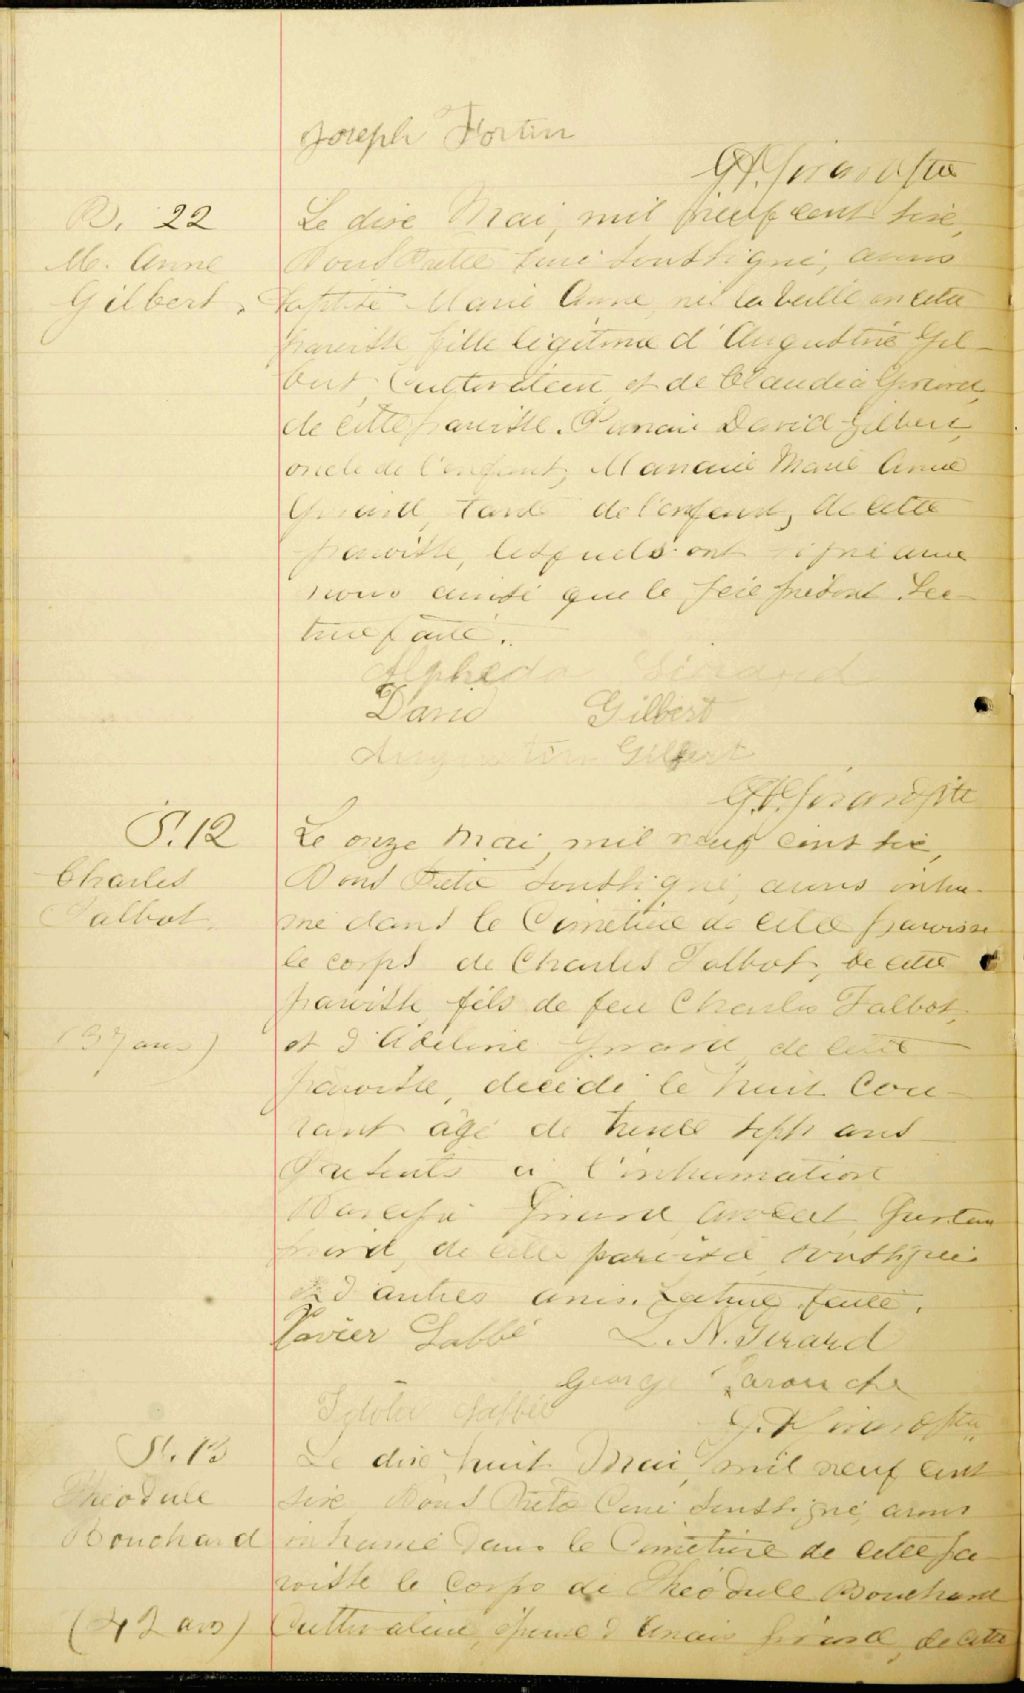 Joseph Fortin
G. Girard Ptre
B. 22
M. Anne
Gilbert.
Le dix Mai, mil neuf cent six,
Nous Prêtre Curé soussigné, avons
baptisé Marie Anne, née la veille en cette
paroisse fille légitime d'Augustin Gil-
bert, Cultivateur, et de Claudia Girard,
de cette paroisse. Parrain David Gilbert,
oncle de l'enfant, Marraine Marie Anne
Girard, tante de l'enfant, de cette
paroisse, lesquels ont signé avec
nous ainsi que le père présent. Lec-
ture faite.
Alpheda Girard
David Gilbert
Augustin Gilbert
G. Girard Ptre
S. 12
Charles
Talbot.
(37 ans)
Le onze Mai, mil neuf cent six,
Nous Prêtre soussigné, avons inhu-
mé dans le Cimetière de cette paroisse
le corps de Charles Talbot, de cette
paroisse, fils de feu Charles Talbot,
et d'Adeline Girard, de cette
paroisse, décédé le huit cou-
rant âgé de trente sept ans
Présents à l'inhumation
Girard,
de cette paroisse soussignés
et d'autres amis. Lecture faite.
Xavier Labbé L. N. Girard
George Larouche
Labbé
G. Girard Ptre
S. 13
Théodule
Bouchard
(42 ans)
Le dix huit Mai, mil neuf cent
six, Nous Prêtre Curé soussigné, avons
inhumé dans le Cimetière de cette pa-
roisse le corps de Théodule Bouchard
Cultivateur, époux d'Anais Girard, de cette